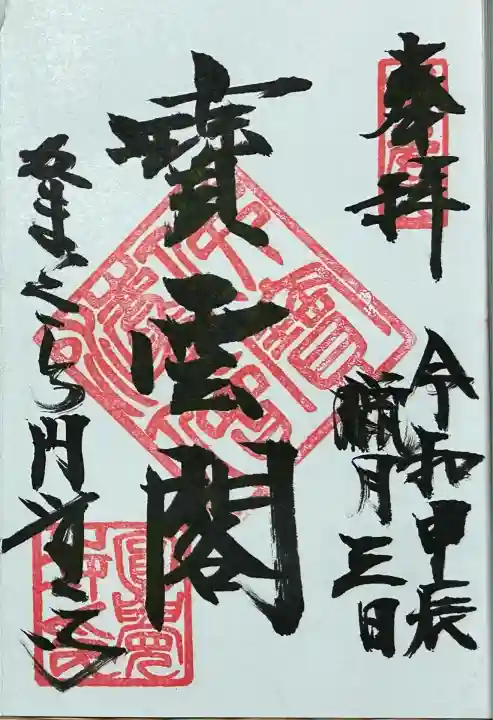 奉拝
令和甲辰
臘月三日
寶雲閣
かまくら円